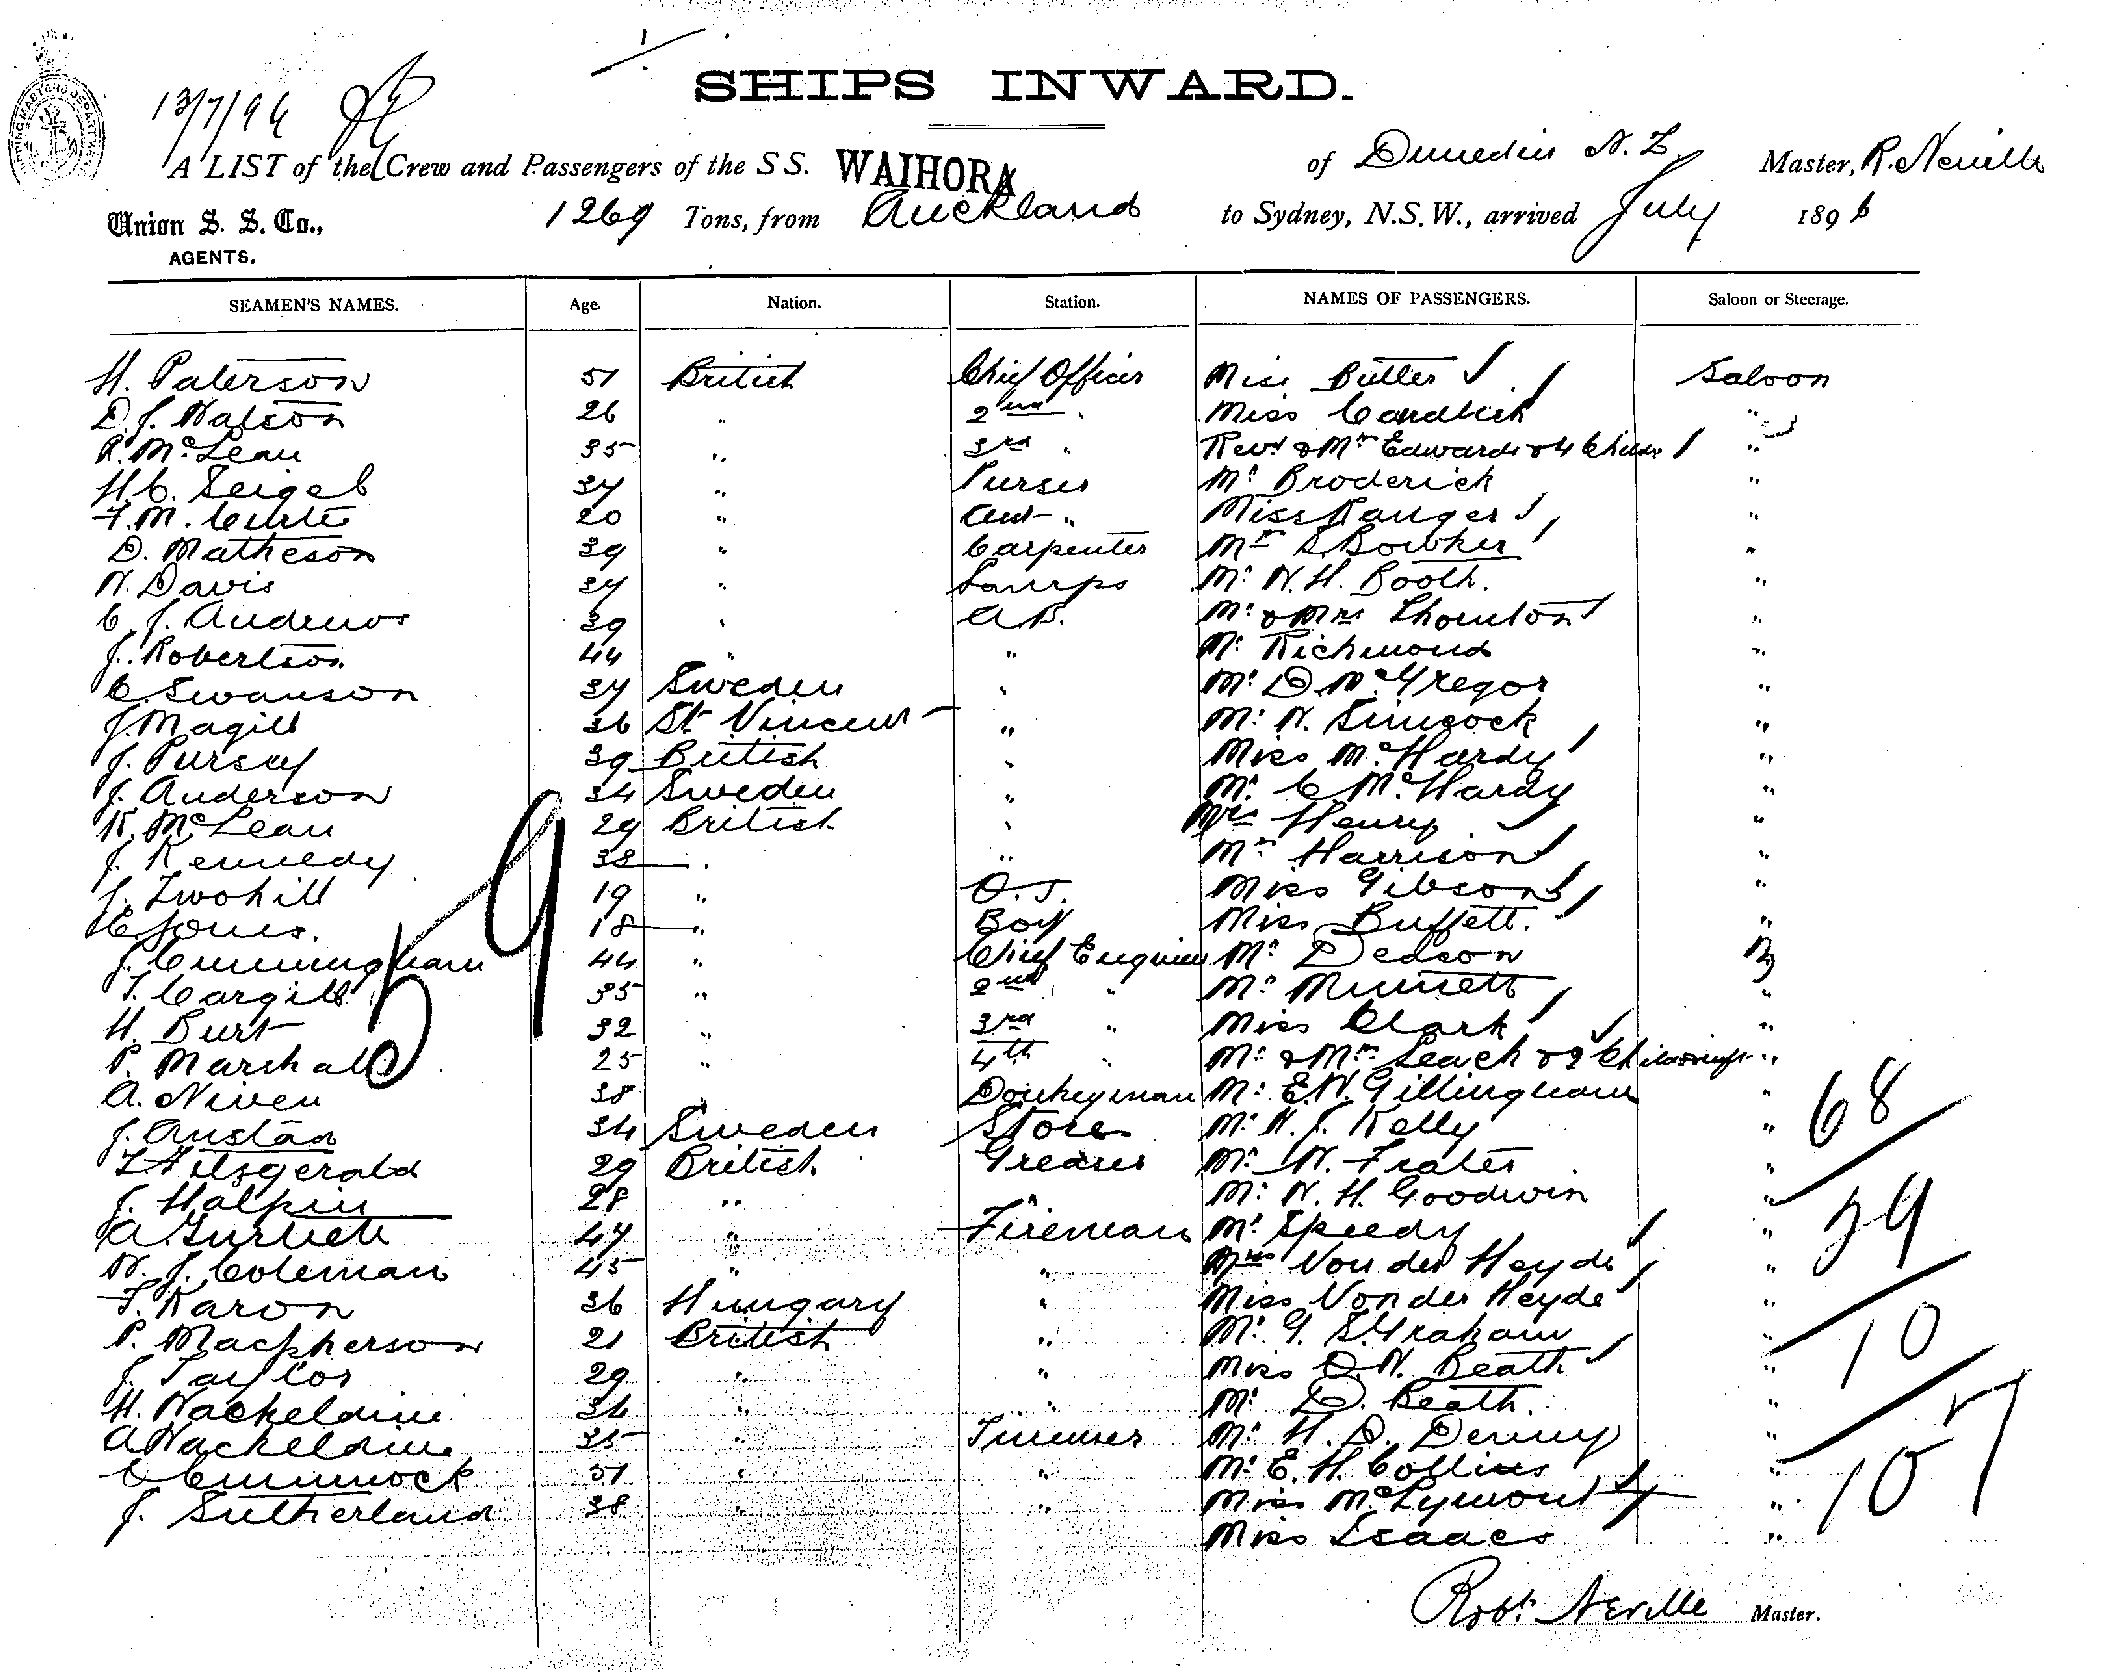 SHIPS INWARD.
13/7/96
A LIST of the Crew and Passengers of the SS. WAIHORA of Dunedin N.Z. Master, R. Neville
Union S. S. Co., 1269 Tons, from Auckland to Sydney, N.S.W., arrived July 1896
AGENTS.
SEAMEN'S NAMES. Age. Nation. Station. NAMES OF PASSENGERS. Saloon or Steerage.
H. Paterson 51 British Chief Officer Miss Butler Saloon
D. J. Watson 26 " 2nd " Miss "
R. McLean 35 " 3rd " Revd & Mrs Edwards & 4 Childn "
H. C. Seigel 37 " Purser Mr Broderick "
F. M. 20 " " Miss "
D. Matheson 39 " Carpenter Mrs Bowker "
W. Davis 37 " Lamps Mr W. H. Booth. "
C. J. Andrews 39 " A.B. Mr & Mrs Thornton "
J. Robertson 44 " " Mr Richmond "
C. Swanson 37 Sweden " Mr D McGregor "
J. Magill 36 St Vincent " Mr W. Simcock "
J. Pursey 39 British " Miss McHardy "
J. Anderson 34 Sweden " Mr C McHardy "
K. McLean 29 British " Mrs Henry "
J. Kennedy 38 " " Mrs Harrison "
J. Twohill 19 " O.S. Miss Gibson "
E. Jones. 18 " Boy Miss Buffett. "
J. Cunningham 44 " Chief Engineer Mr Dedson "
T. Cargill 35 " 2nd " Mr Munnett "
H. Burt 32 " 3rd " Miss Clark "
P. Marshall 25 " 4th " Mr & Mrs Leach & 2 Children "
A. Niven 38 " Donkeyman Mr E. W. Gillingham "
J. Austad 34 Sweden Stores Mr H. J. Kelly " 68
T Fitzgerald 29 British Greaser Mr W. Frater "
J. Halpin 28 " Mr W. H. Goodwin "
A. 47 " Fireman Mr Speedy " 29
W. J. Coleman 45 " " Mrs Von der Heyde "
F. Karon 36 Hungary " Miss Von der Heyde "
P. Macpherson 21 British " Mr G. S. Graham " 10
J. Taylor 29 " " Miss O. N. Beath "
H. Wackeldine 36 " " Mr D. Beath. "
A Wackeldine 35 " Trimmer Mr H. D. Denny "
C Cummock 51 " " Mr E. H. Collins "
J. Sutherland 38 " " Miss McLymont " 107
Miss Isaacs "
59
Robt. Neville Master.